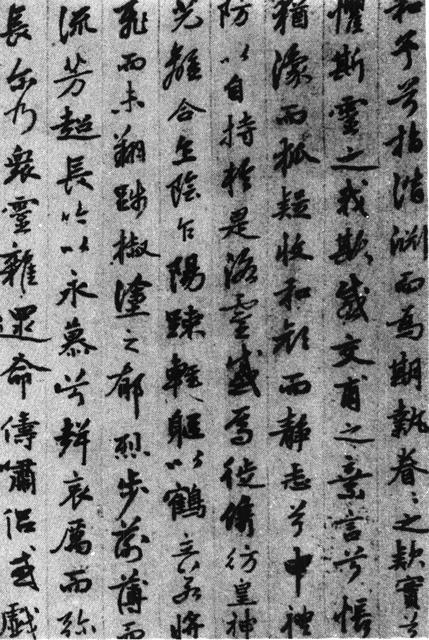 和予兮指潛淵而為期執眷〻之欵實兮
懼斯靈之我欺感交甫之棄言兮悵
猶豫而狐疑收和顏而靜志兮申禮
防以自持於是洛靈感焉徙倚彷皇神
光離合乍陰乍陽竦輕軀以鶴立若將
飛而未翔踐椒塗之郁烈步蘅薄而
流芳超長吟以永慕兮聲哀厲而弥
長尔乃衆靈雜遝命儔嘯侶或戲